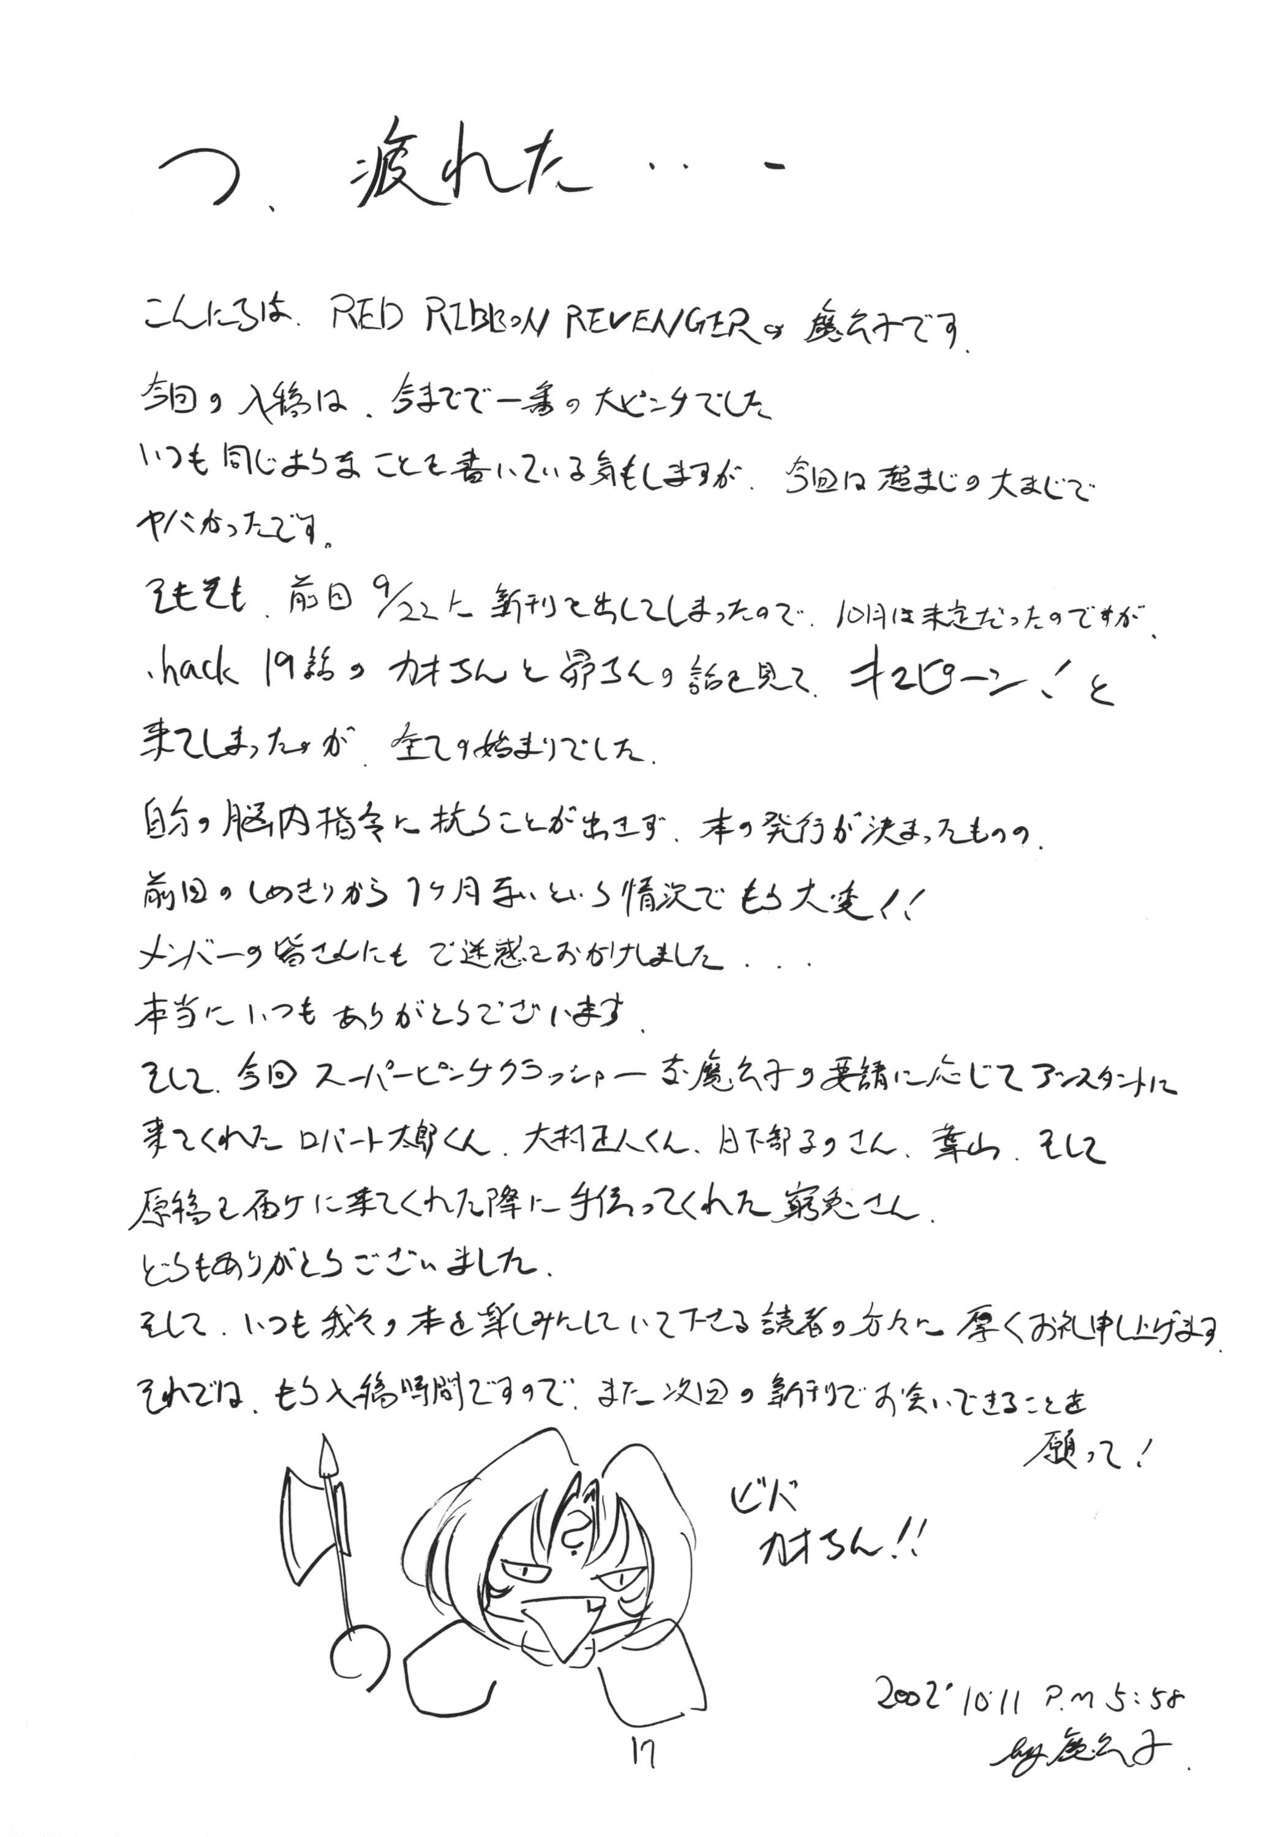 つ、疲れた・・・
こんにちは、RED RIBBON REVENGERの魔公子です。
今回の入稿は、今までで一番の大ピンチでした
いつも同じようなことを書いている気もしますが、今回は超まじの大まじで
ヤバかったです。
そもそも、前回9/22に新刊を出してしまったので、10月は未定だったのですが、
.hack 19話のカオちんと昴ちんの話を見て、キュピーン!と
来てしまったのが、全ての始まりでした。
自分の脳内指令に抗うことが出きず、本の発行が決まったものの、
前回のしめきりから1ヶ月無いという情況でもう大変!!
メンバーの皆さんにもご迷惑をおかけしました...
本当にいつもありがとうございます。
そして、今回スーパーピンチクラッシャーな魔公子の要請に応じてアシスタントに
来てくれたロバート太郎くん、大村正人くん、日下部さん、葉山、そして
原稿を届けに来てくれた際に手伝ってくれた窮兎さん、
どうもありがとうございました。
そして、いつも我々の本を楽しみにしていて下さる読者の方々に厚くお礼申し上げます。
それでは、もう入稿時間ですので、また次回の新刊でお会いできることを
願って!
ビバ
カオちん!!
2002' 10.11 P.M 5:58
by 魔公子.
17